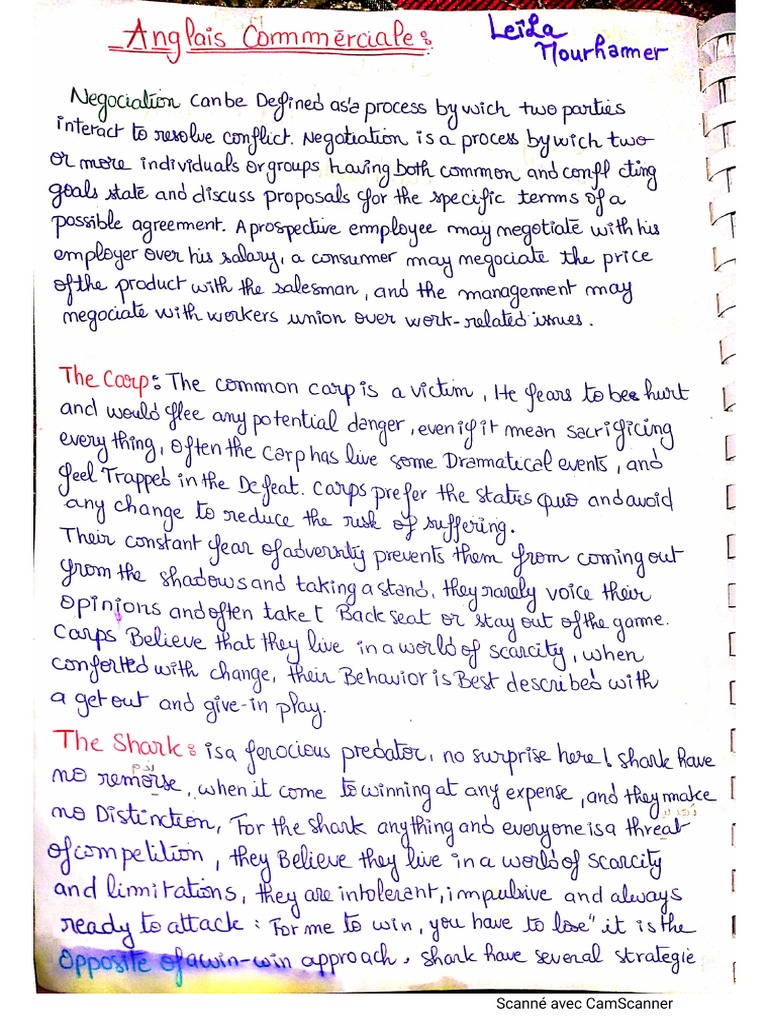 Anglais Commerciale:
Leila
Mourhamer
Negociation can be Defined as a process by wich two parties
interact to resolve conflict. Negotiation is a process by wich two
or more individuals or groups having both common and confl cting
goals state and discuss proposals for the specific terms of a
possible agreement. A prospective employee may negotiate with his
employer over his salary, a consumer may negociate the price
of the product with the salesman, and the management may
negociate with workers union over work-related issues.
The Carp: The common carp is a victim, He fears to bee hurt
and would flee any potential danger, even if it mean sacrificing
every thing, often the carp has live some Dramatical events, and
feel Trapped in the Defeat. Carps prefer the status quo and avoid
any change to reduce the risk of suffering.
Their constant fear of adversity prevents them from coming out
from the shadows and taking a stand, they rarely voice their
opinions and often take t Back seat or stay out of the game.
Carps Believe that they live in a world of scarcity, when
conforted with change, their Behavior is Best described with
a get out and give-in play.
The Shark: is a ferocious predator, no surprise here! Shark have
ندم
no remorse, when it come to winning at any expense, and they make
no Distinction, For the shark anything and everyone is a threat
of competition, they Believe they live in a world of scarcity
and limnitations, they are intolerent, impulsive and always
ready to attack: For me to win, you have to lose" it is the
Opposite of a win-win approach, shark have several strategie
Scanné avec CamScanner